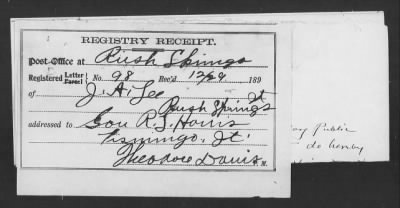 REGISTRY RECEIPT.
Post Office at Rush Springs
Registered Letter Parcel No. 98 Rec'd 12/29 189
of J. A. Lee
Rush Springs It
addressed to Gov R. S. Harris
Tishomingo, It.
Theodore Davis
Public
do hereby